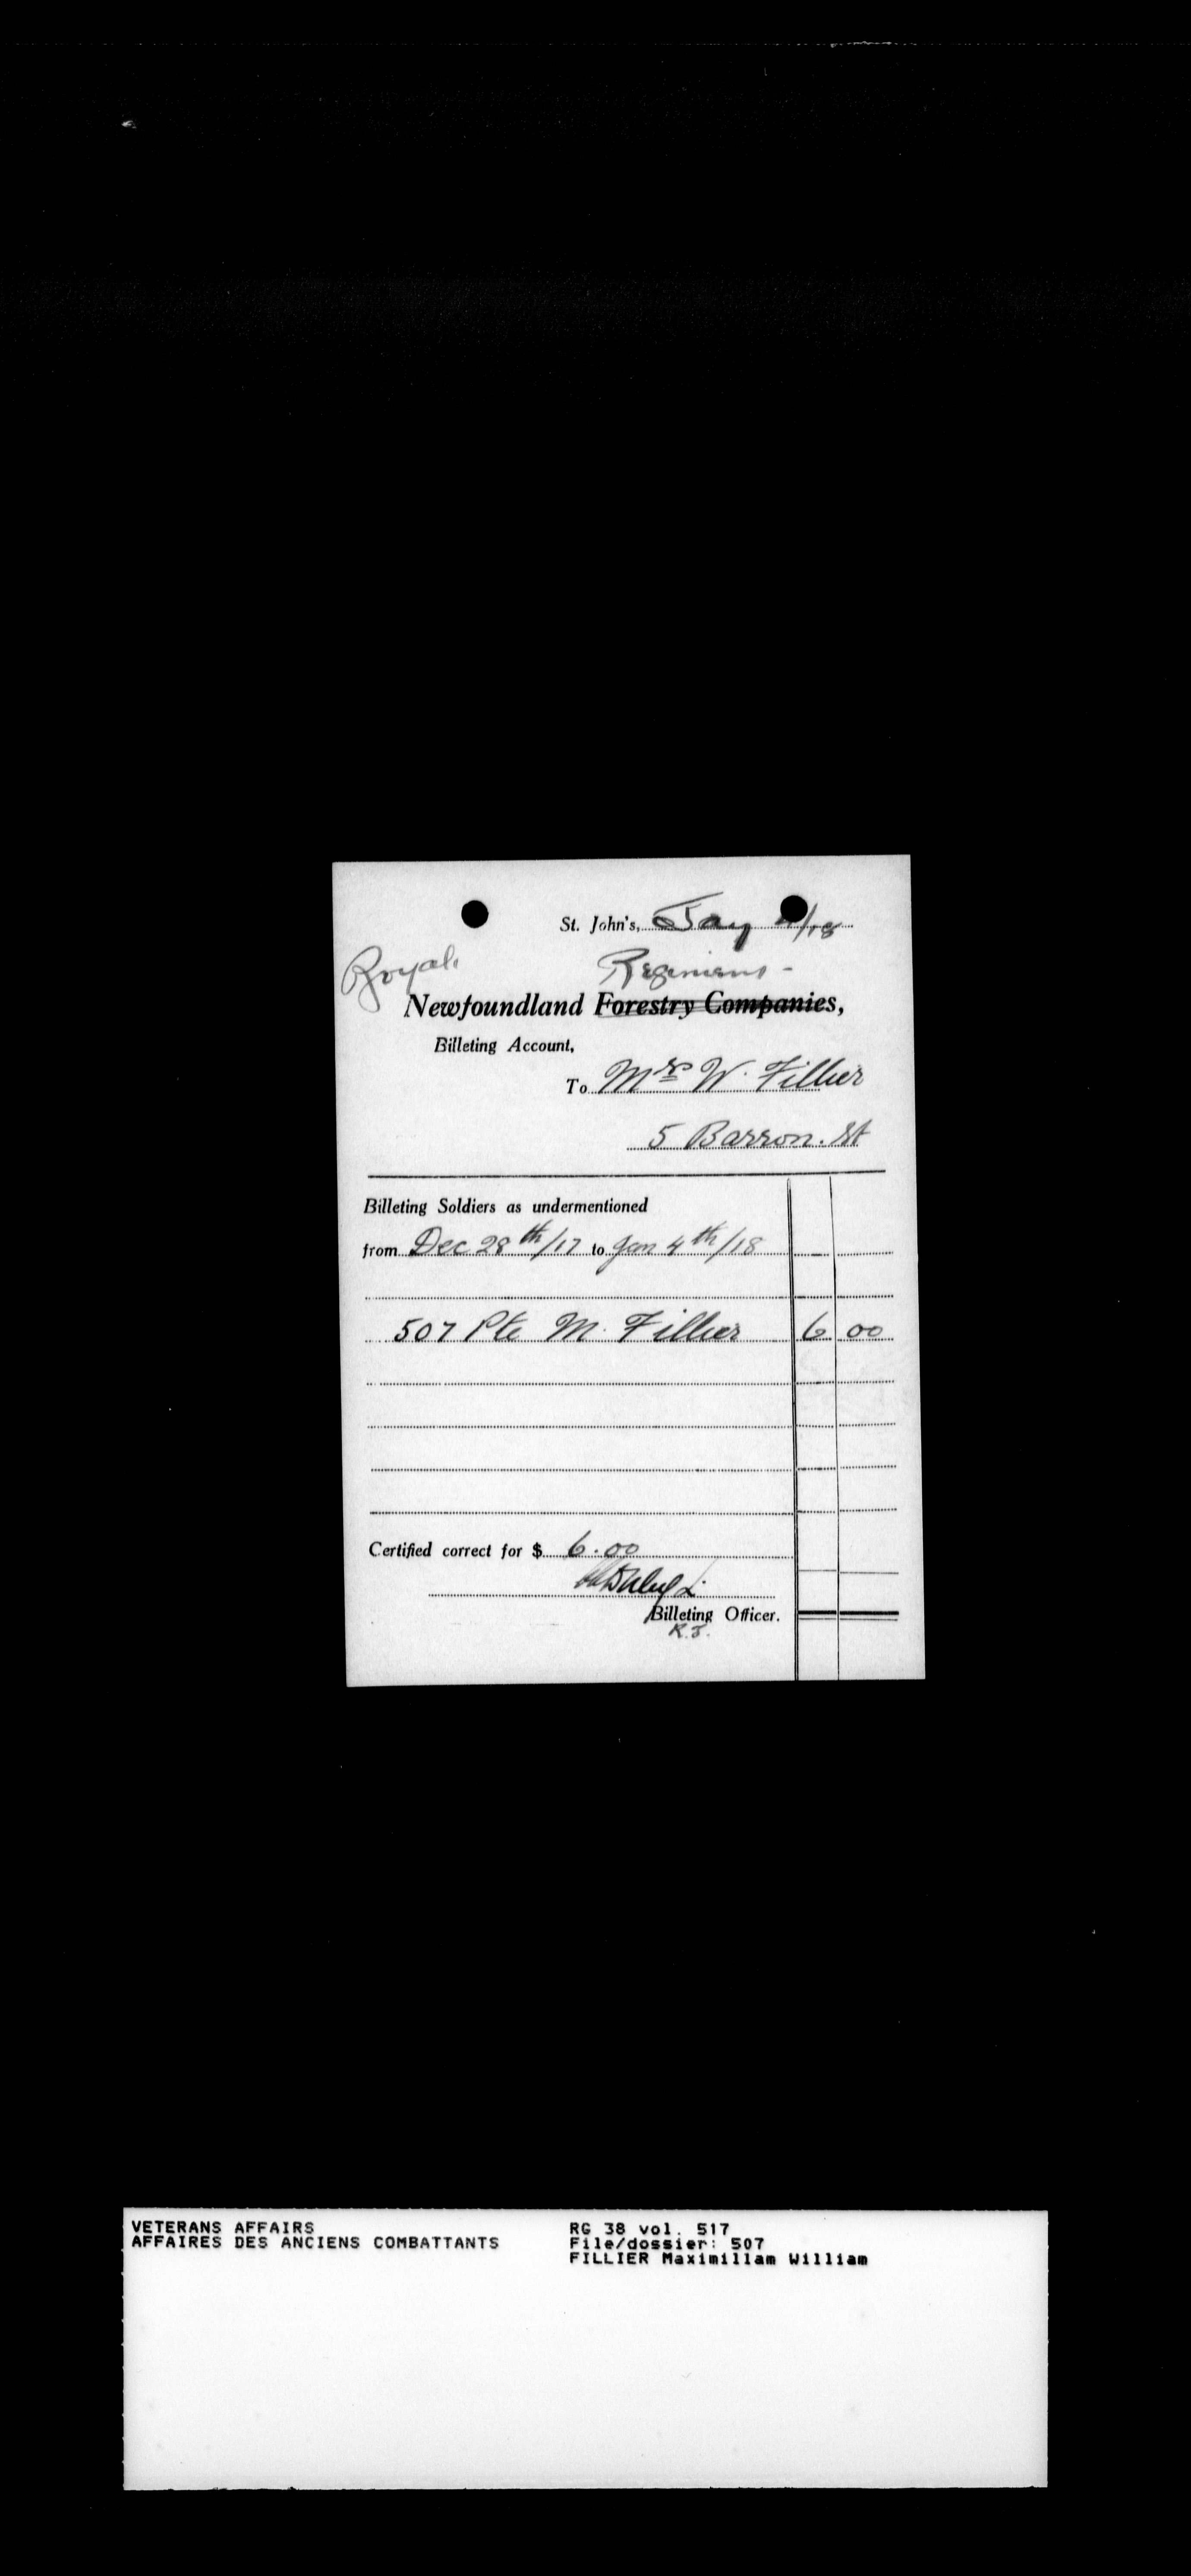 St. John's, Jany 4/18
Royal Regiment -
Newfoundland Forestry Companies,
Billeting Account,
To Mrs W. Fillier
5 Barron. St
Billeting Soldiers as undermentioned
from Dec 28th/17 to Jan 4th/18
507 Pte M. Fillier 6 00
Certified correct for $ 6.00
Billeting Officer.
VETERANS AFFAIRS
AFFAIRES DES ANCIENS COMBATTANTS
RG 38 vol. 517
File/dossier: 507
FILLIER Maximillam William